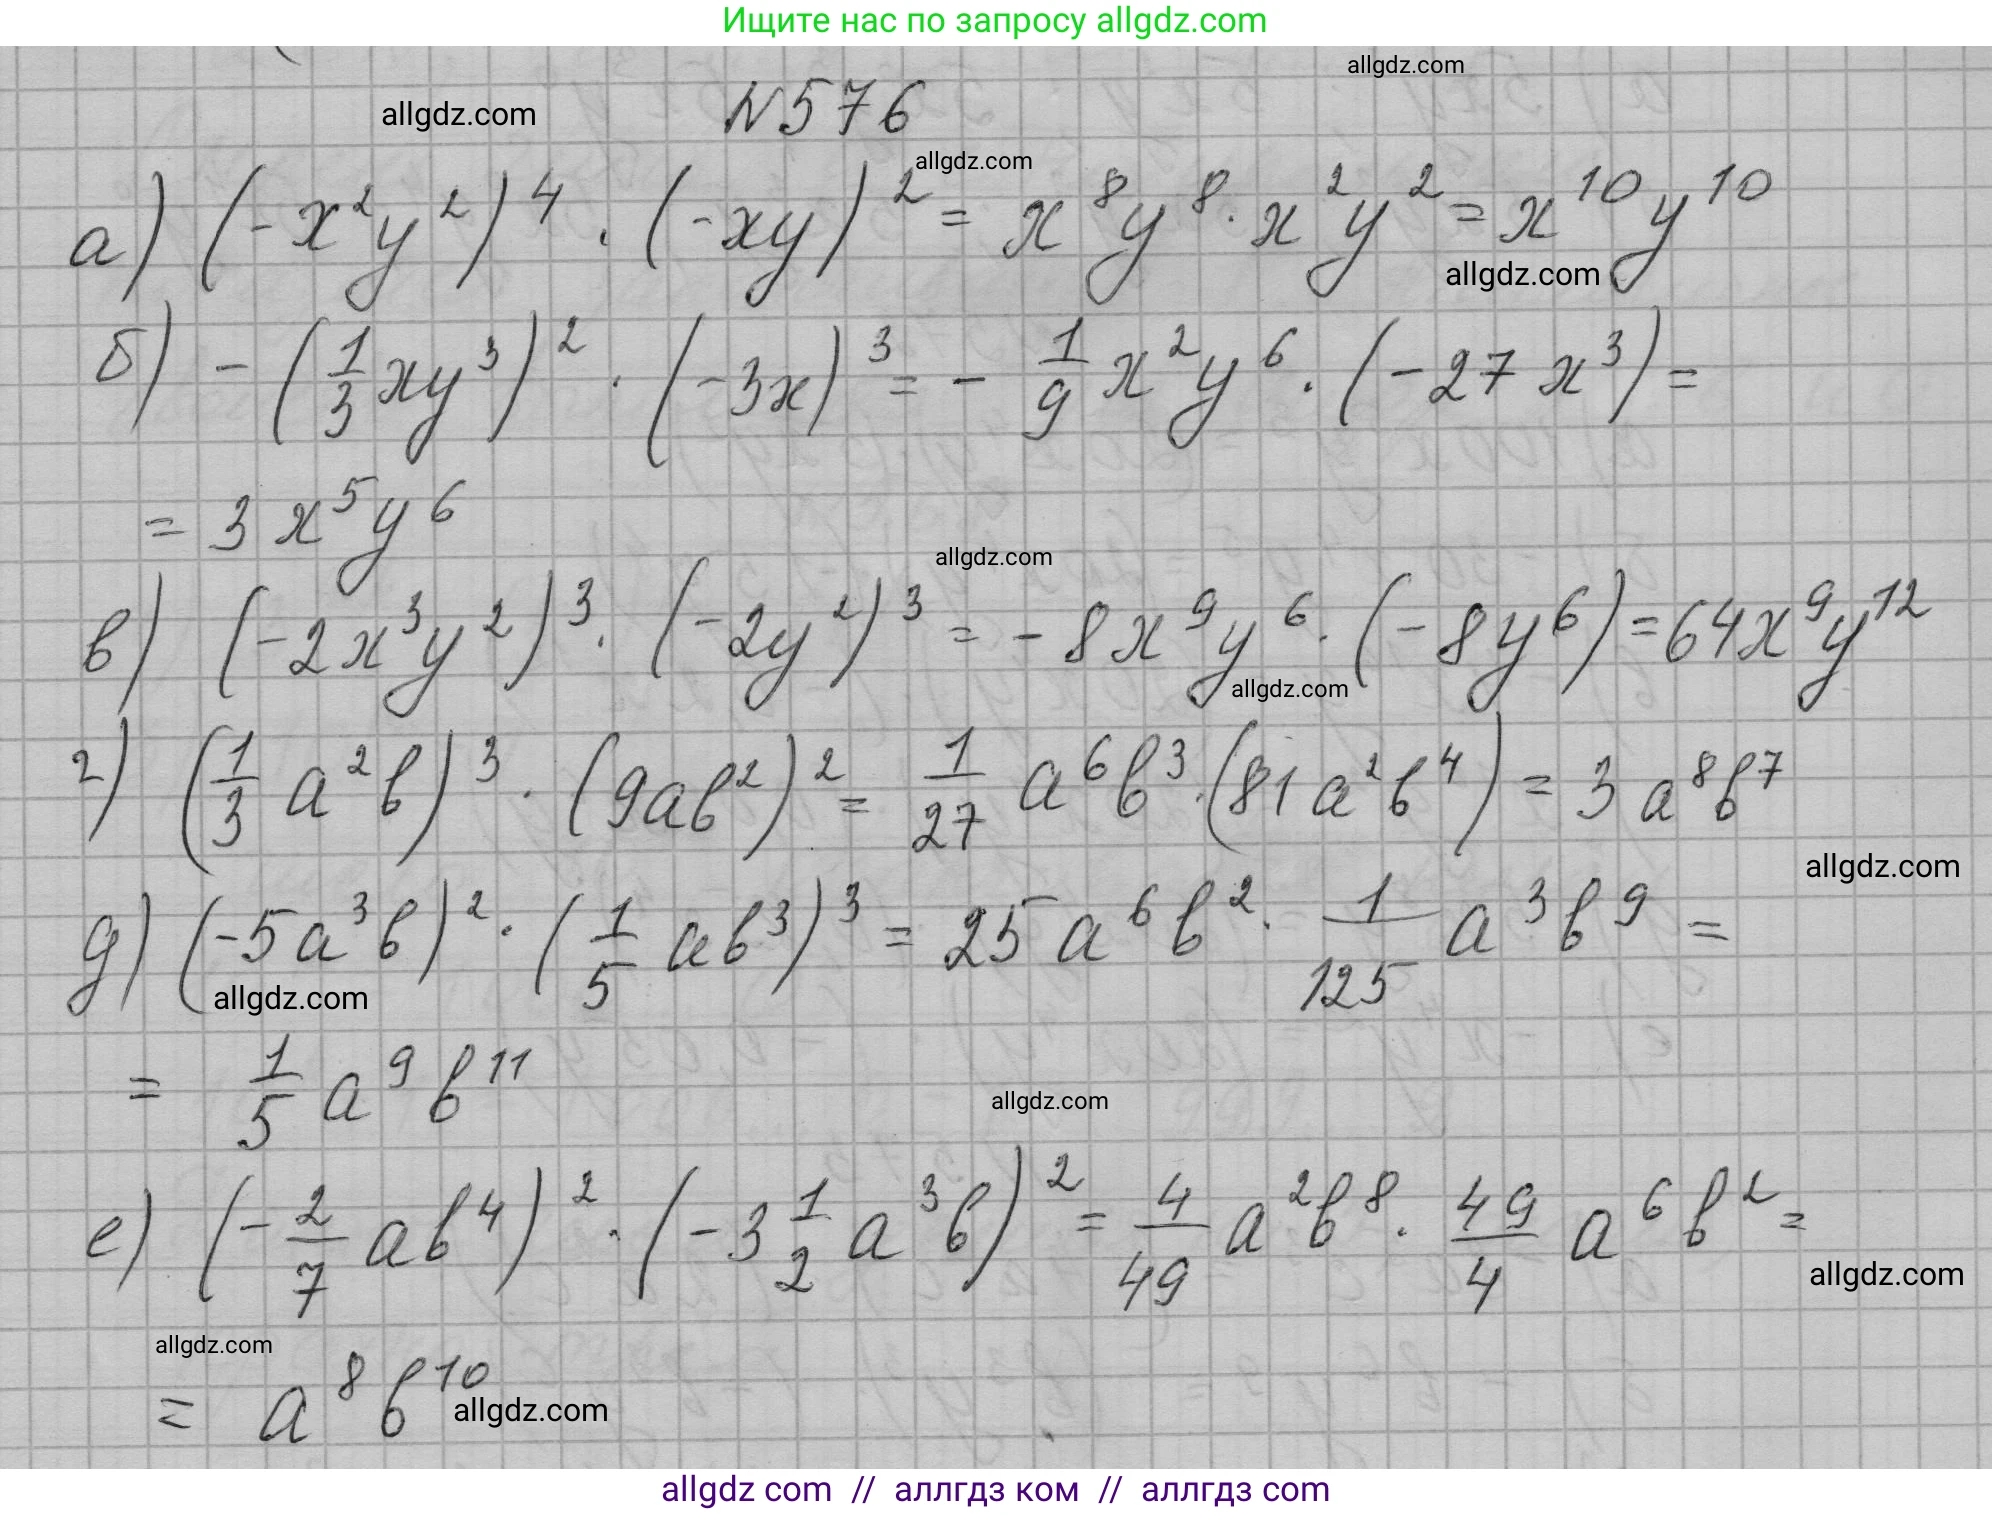 Ищите нас по запросу allgdz.com
allgdz.com
allgdz.com
N576
allgdz.com
а) (-x²y²)⁴ · (-xy)² = x⁸y⁸ · x²y² = x¹⁰y¹⁰
allgdz.com
б) -(1/3 xy³)² · (-3x)³ = - 1/9 x²y⁶ · (-27x³) =
= 3x⁵y⁶
allgdz.com
в) (-2x³y²)³ · (-2y²)³ = -8x⁹y⁶ · (-8y⁶) = 64x⁹y¹²
allgdz.com
г) (1/3 a²b)³ · (9ab²)² = 1/27 a⁶b³ · (81a²b⁴) = 3a⁸b⁷
allgdz.com
д) (-5a³b)² · (1/5 ab³)³ = 25a⁶b² · 1/125 a³b⁹ =
allgdz.com
= 1/5 a⁹b¹¹
allgdz.com
е) (-2/7 ab⁴)² · (-3 1/2 a³b)² = 4/49 a²b⁸ · 49/4 a⁶b² =
allgdz.com
allgdz.com
= a⁸b¹⁰
allgdz.com
allgdz com // аллгдз ком // аллгдз com